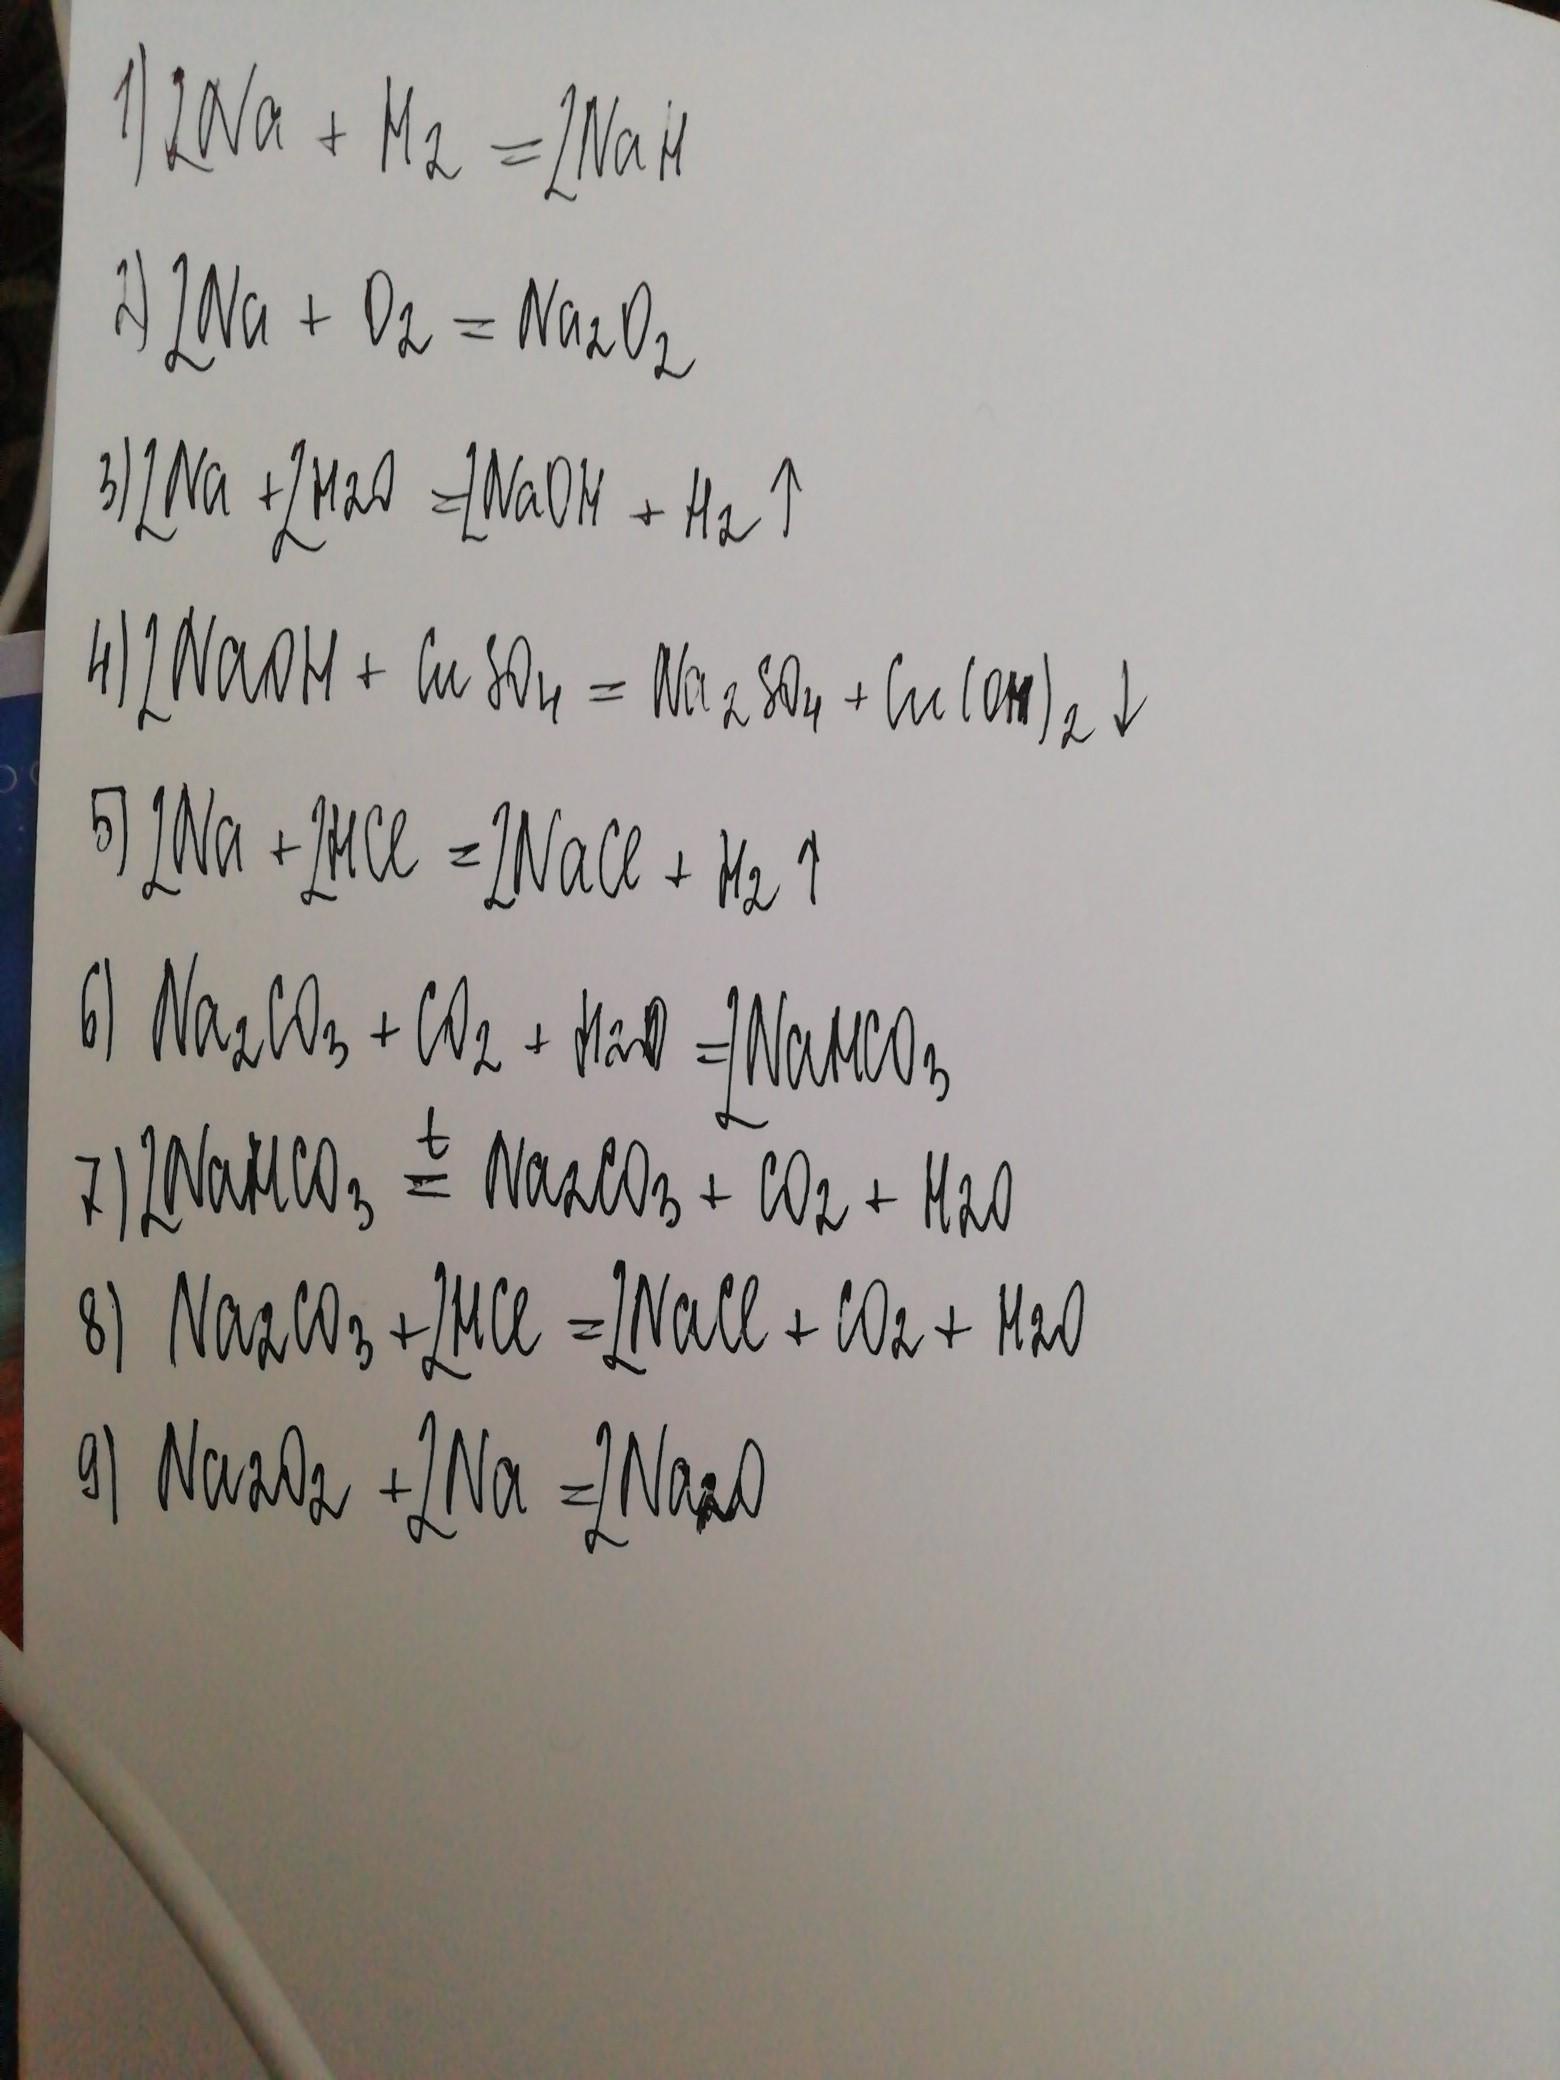 1) 2Na + H₂ = 2NaH
2) 2Na + O₂ = Na₂O₂
3) 2Na + 2H₂O = 2NaOH + H₂↑
4) 2NaOH + CuSO₄ = Na₂SO₄ + Cu(OH)₂↓
5) 2Na + 2HCl = 2NaCl + H₂↑
6) Na₂CO₃ + CO₂ + H₂O = 2NaHCO₃
t
7) 2NaHCO₃ = Na₂CO₃ + CO₂ + H₂O
8) Na₂CO₃ + 2HCl = 2NaCl + CO₂ + H₂O
9) Na₂O₂ + 2Na = 2Na₂O